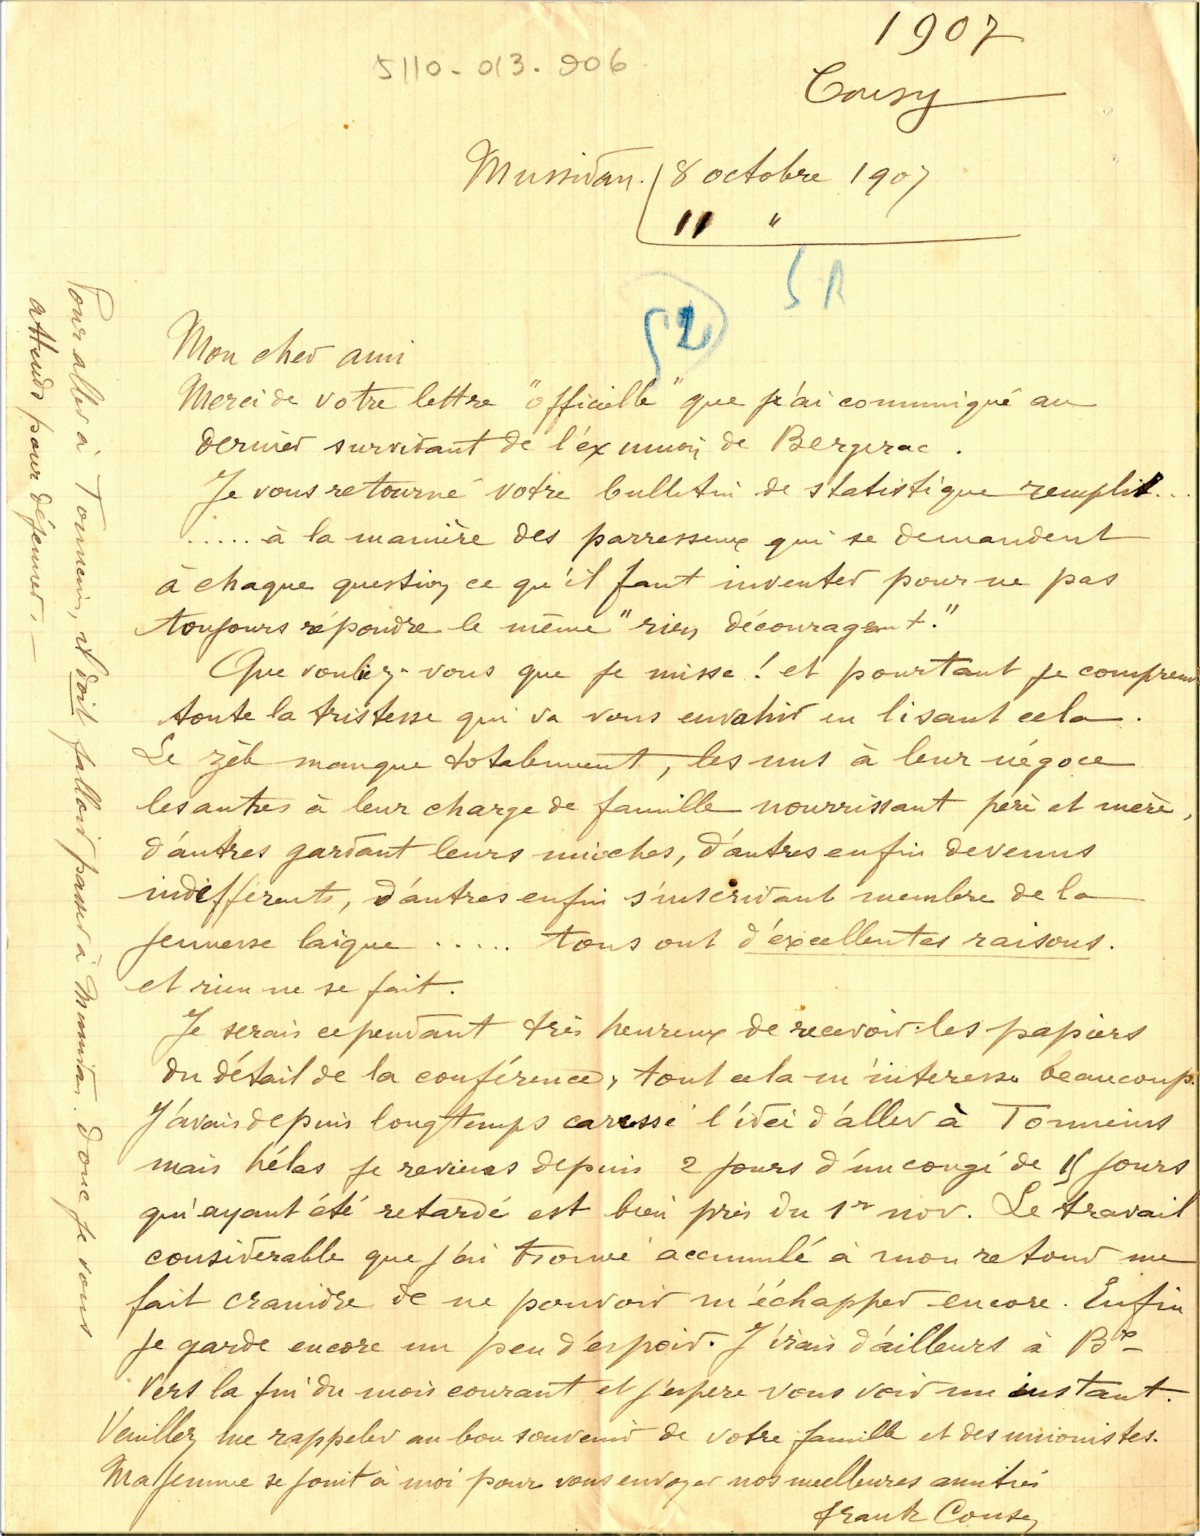 1907
5110-013.906
Cousy
Mussidan. 8 octobre 1907
11 "
SR
52
Mon cher ami
Merci de votre lettre "officielle" que j'ai communiqué au
dernier survivant de l'ex union de Bergerac.
Je vous retourne votre bulletin de statistique remplit...
..... à la manière des parresseux qui se demandent
à chaque question ce qu'il faut inventer pour ne pas
toujours répondre le même "rien décourageant."
Que vouliez-vous que je misse ! et pourtant je comprend
toute la tristesse qui va vous envahir en lisant cela.
Le zèle manque totalement, les uns à leur négoce
les autres à leur charge de famille nourrissant père et mère,
d'autres gardant leurs mioches, d'autres enfin devenus
indifférents, d'autres enfin s'inscrivant membre de la
jeunesse laïque ..... tous ont d'excellentes raisons.
et rien ne se fait.
Je serais cependant très heureux de recevoir les papiers
du détail de la conférence, tout cela m'interesse beaucoup.
J'avais depuis longtemps caressé l'idée d'aller à Tonneins
mais hélas je reviens depuis 2 jours d'un congé de 15 jours
qui ayant été retardé est bien près du 1er nov. Le travail
considerable que j'ai trouvé accumulé à mon retour me
fait craindre de ne pouvoir m'échapper encore. Enfin
je garde encore un peu d'espoir. J'irais d'ailleurs à Bx
vers la fin du mois courant et j'espere vous voir un instant.
Veuillez me rappeler au bon souvenir de votre famille et des unionistes.
Ma femme se joint à moi pour vous envoyer nos meilleures amitiés
Frank Cousy
Pour aller à Tonneins, il doit falloir passer à Mussidan. Donc je vous
attends pour déjeuner.—